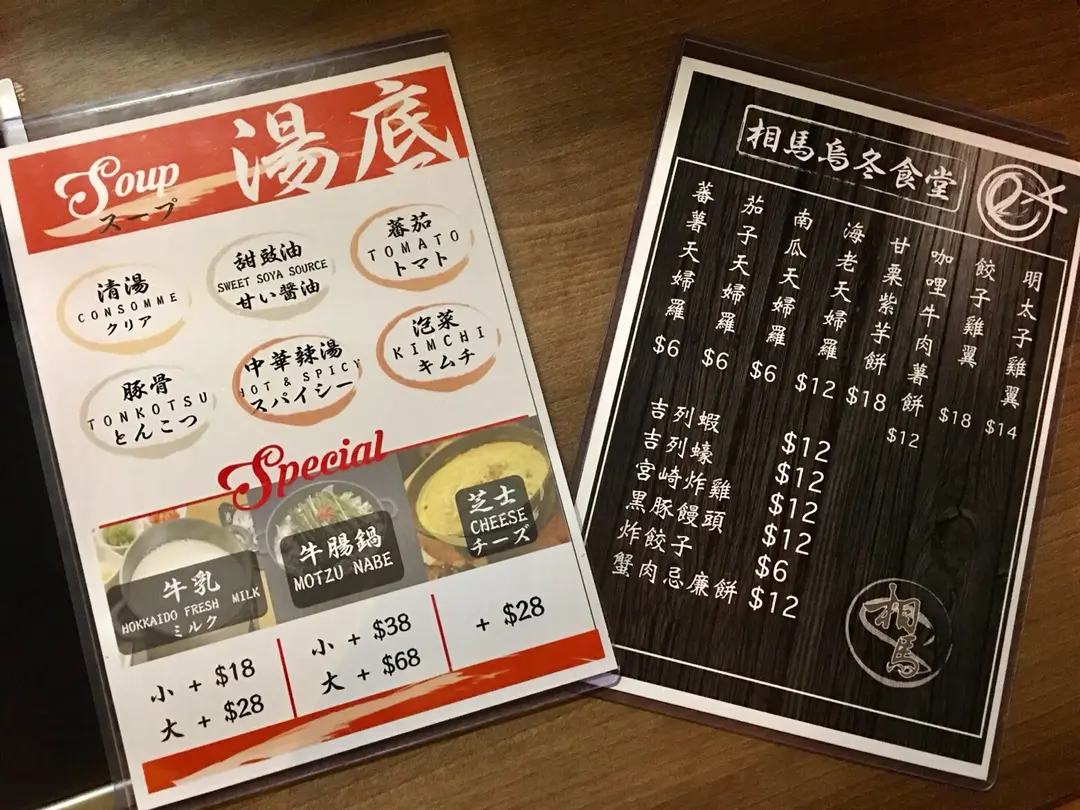 Soup 湯底
スープ
清湯
CONSOMME
クリア
甜豉油
SWEET SOYA SOURCE
甘い醬油
蕃茄
TOMATO
トマト
豚骨
TONKOTSU
とんこつ
中華辣湯
HOT & SPICY
スパイシー
泡菜
KIMCHI
キムチ
Special
牛乳
HOKKAIDO FRESH MILK
ミルク
牛腸鍋
MOTZU NABE
芝士
CHEESE
チーズ
小 + $18
大 + $28
小 + $38
大 + $68
+ $28
相馬烏冬食堂
蕃薯天婦羅 $6
茄子天婦羅 $6
南瓜天婦羅 $6
海老天婦羅 $12
甘栗紫芋餅 $18
咖哩牛肉薯餅 $12
餃子雞翼 $18
明太子雞翼 $14
吉列蝦 $12
吉列蠔 $12
宮崎炸雞 $12
黑豚饅頭 $12
炸餃子 $6
蟹肉忌廉餅 $12
相馬